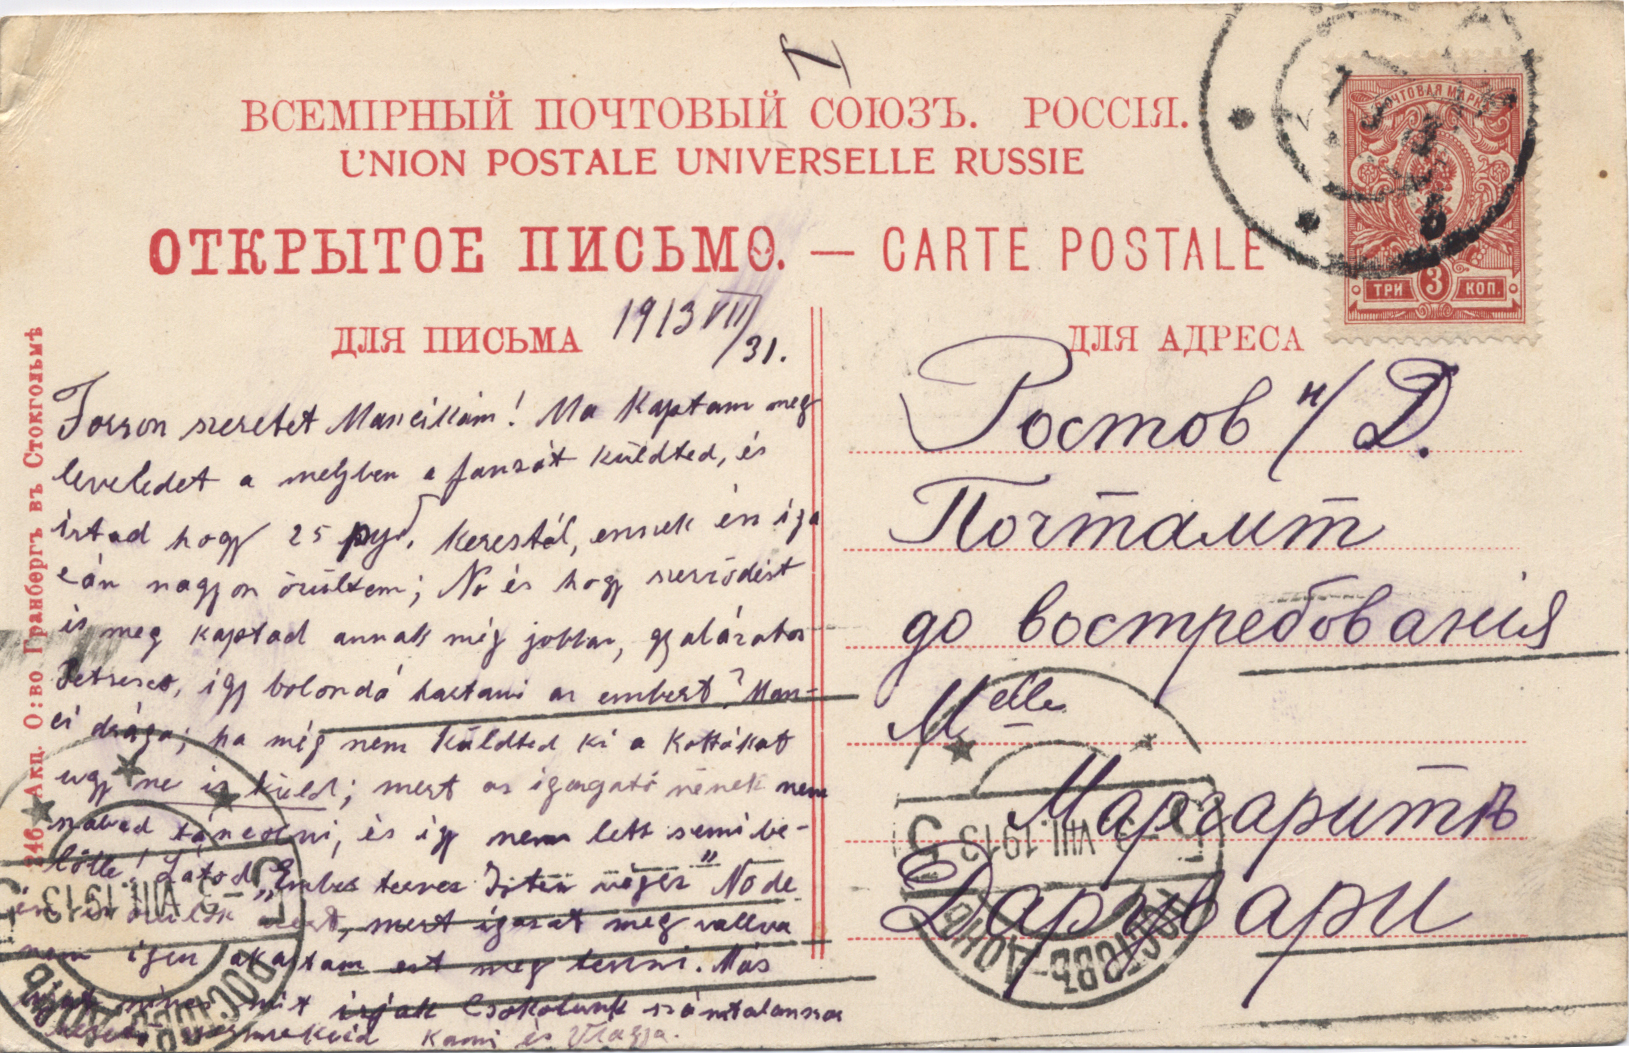 ВСЕМІРНЫЙ ПОЧТОВЫЙ СОЮЗЪ. РОССІЯ.
UNION POSTALE UNIVERSELLE RUSSIE
ОТКРЫТОЕ ПИСЬМО. — CARTE POSTALE
ПОЧТОВАЯ МАРКА
ТРИ 3 КОП.
ДЛЯ ПИСЬМА
1913 VII/31.
Forron szeretet Mancikám! Ma kaptam meg
leveledet a melyben a fanzót küldted, és
írtad hogy 25 руб. kerestél, ennek én iga
zán nagyon örültem; No és hogy szerződést
is meg kaptad annak még jobban,
így bolondá tartani az embert? Man-
ci drága; ha még nem küldted ki a kottákat
ugy ne is küld; mert az igazgató nének nem
szabad táncolni, és így nem lett semi be-
lőlle! Látod „Ember tervez Isten végez" No de
mert igazat meg vallva
nem igen akartam ezt meg tenni. Más
nincs mit írjak Csokolunk számtalanszor
Kami és Vlagja.
ДЛЯ АДРЕСА
Ростов н/Д.
Почтамт
до востребованія
Melle
Маргаритѣ
Дарувари
246 Акц. О:во Гранбергъ въ Стокгольмѣ
VIII.1913
РОСТОВЪ-ДОНЪ
VIII.1913